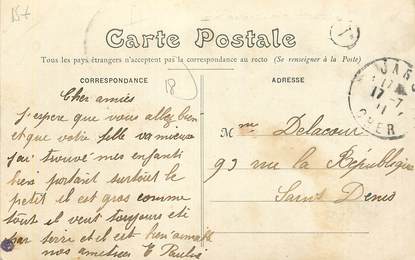 15+
Carte Postale
Tous les pays étrangers n'acceptent pas la correspondance au recto (Se renseigner à la Poste)
CORRESPONDANCE
ADRESSE
18
Cher amies
j'espere que vous allez bien
et que votre fille va mieux
j'ai trouvé mes enfants
bien portait surtout le
petit il est gros comme
tout il veut toujours etre
par terre et il est bien aimable
nos amitiees E Paulin
Mme Delacour
93 rue la République
Saint Denis
JARS
17-7
11
CHER